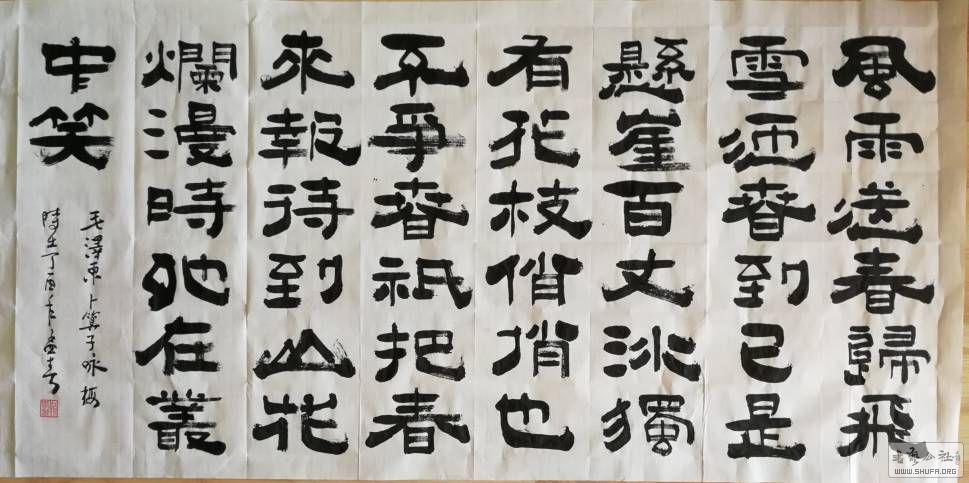 風雨送春歸飛
雪迎春到已是
懸崖百丈冰獨
有花枝俏俏也
不爭春祇把春
來報待到山花
爛漫時她在叢
中笑
毛澤東卜算子咏梅
丁酉年孟春
书艺公社
WWW.SHUFA.ORG